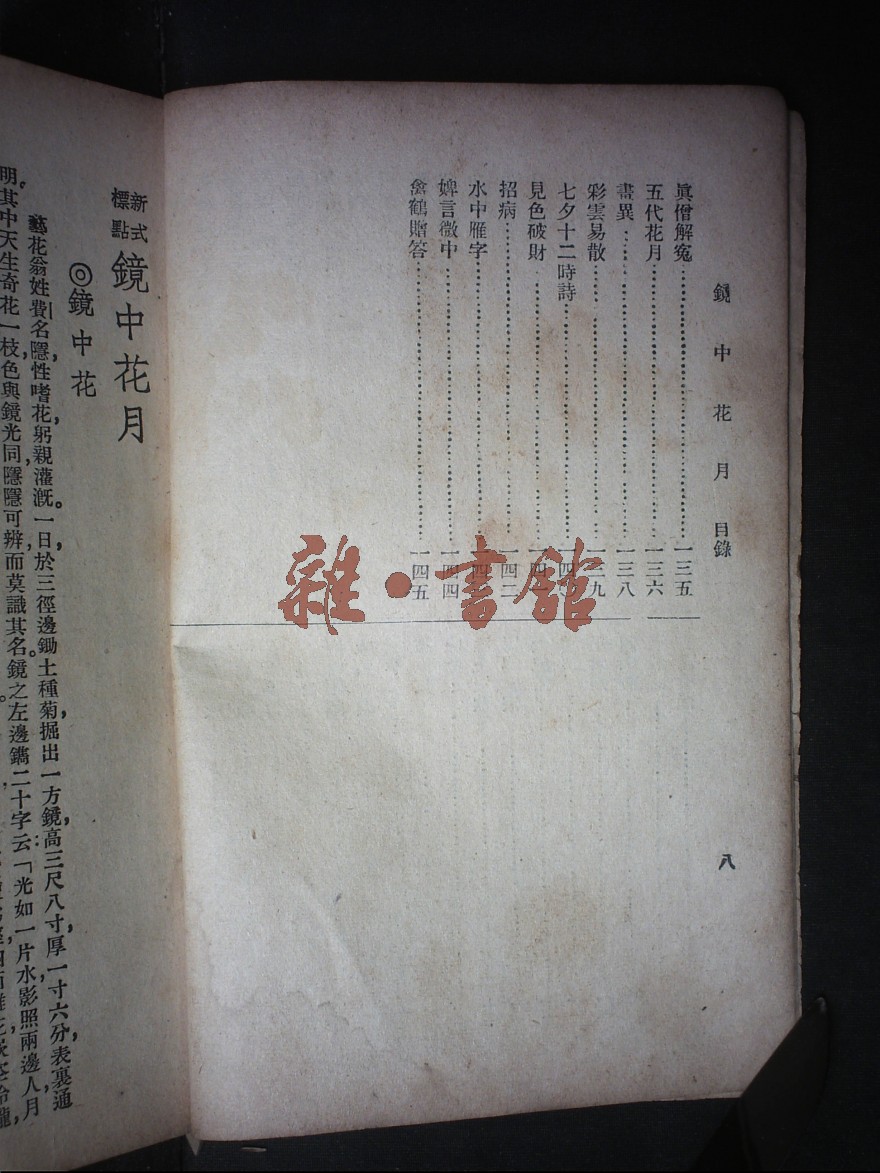 鏡中花月 目錄
八
眞僧解冤……一三五
五代花月……一三六
畫異……一三八
彩雲易散……一三九
七夕十二時詩……一四
見色破財……一四
招病……一四二
水中雁字……一四
婢言微中……一四四
禽鶴贈答……一四五
雜·書館
新式標點 鏡中花月
◎鏡中花
藝花翁姓費名隱,性嗜花,躬親灌漑。一日,於三徑邊鋤土種菊,掘出一方鏡,高三尺八寸,厚一寸六分,表裏通
明。其中天生奇花一枝,色與鏡光同,隱隱可辨,而莫識其名。鏡之左邊鐫二十字云:「光如一片水,影照兩邊人,月